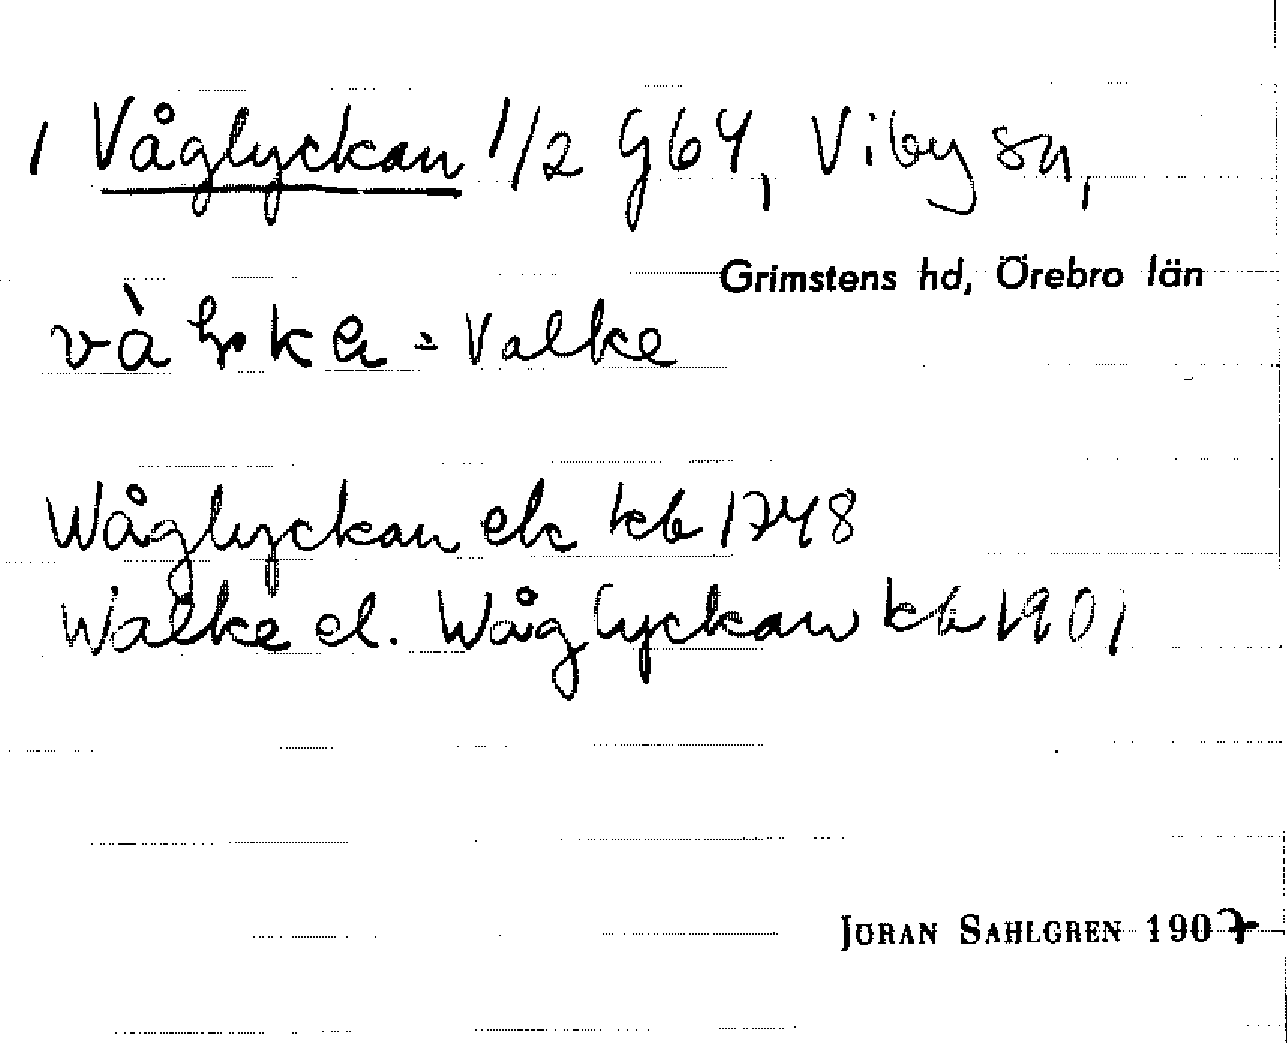 1 Våglyckan 1/2 G64, Viby sn,
Grimstens hd, Örebro län
= Valke
Wåglyckan ek kb 1748
Walke el. Wåglyckan kb 1901
JÖRAN SAHLGREN 1907